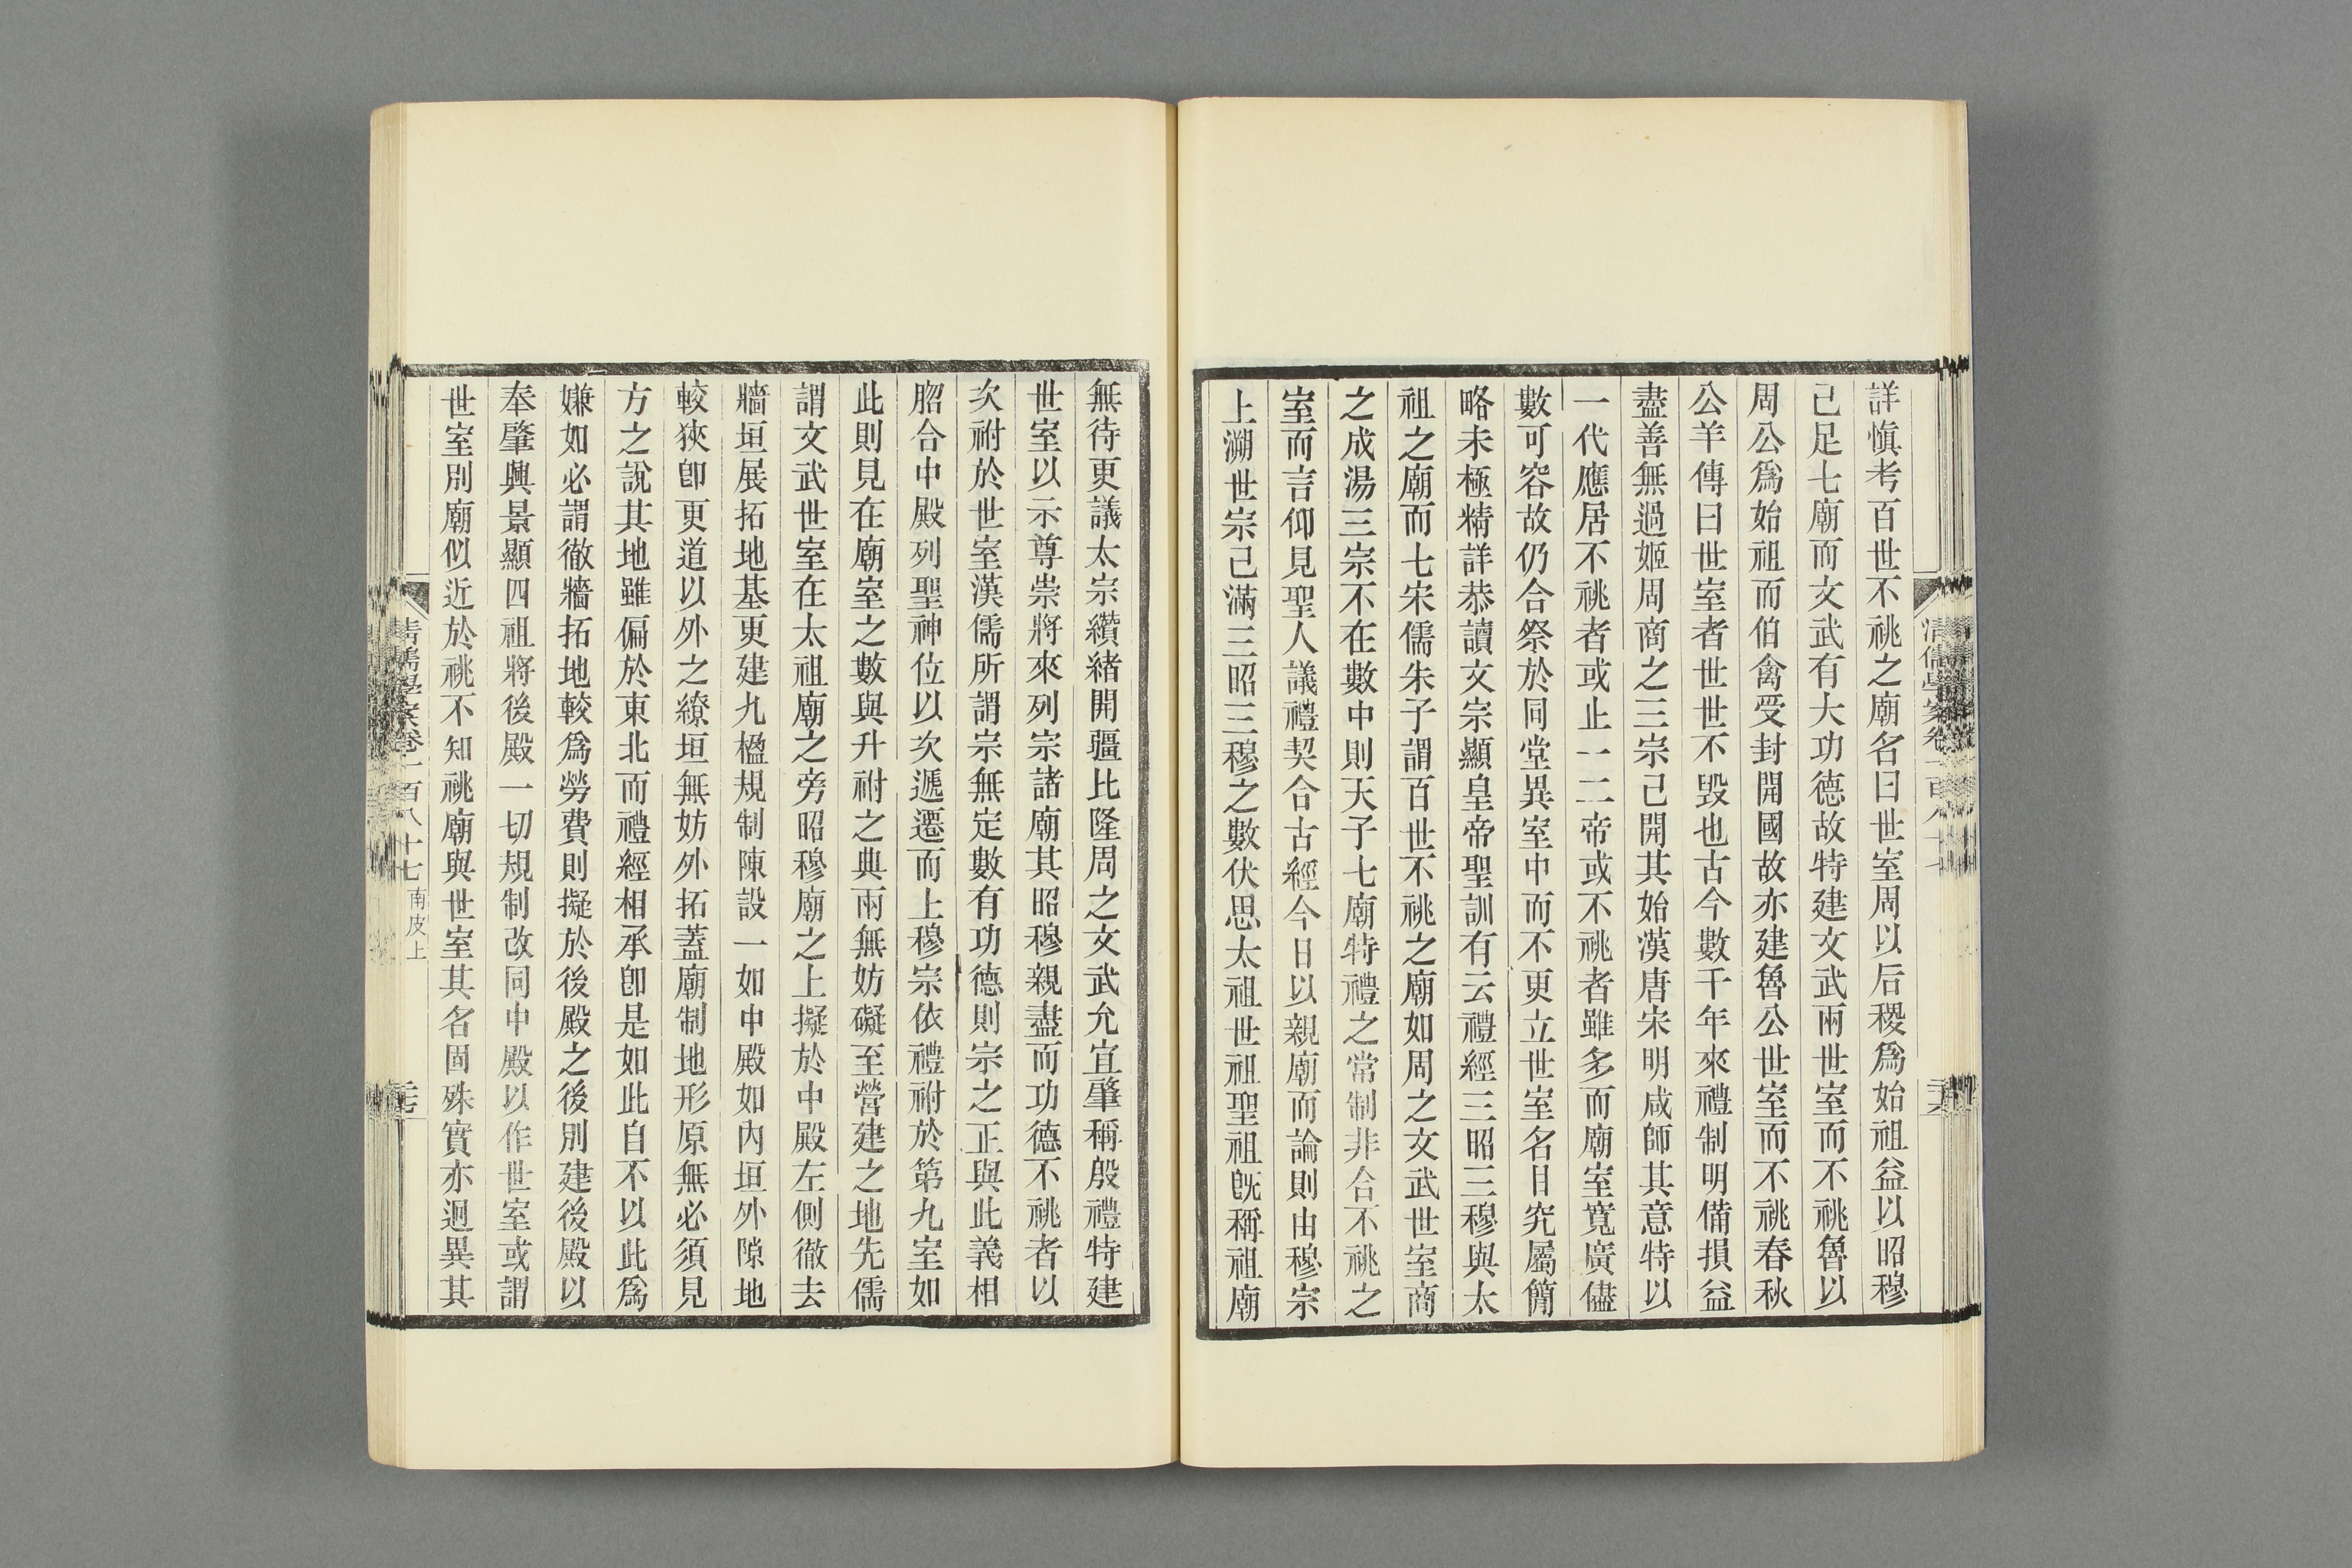 詳慎考百世不祧之廟名曰世室周以后稷爲始祖益以昭穆
己足七廟而文武有大功德故特建文武兩世室而不祧魯以
周公爲始祖而伯禽受封開國故亦建魯公世室而不祧春秋
公羊傳曰世室者世世不毀也古今數千年來禮制明備損益
盡善無過姬周商之三宗己開其始漢唐宋明咸師其意特以
一代應居不祧者或止一二帝或不祧者雖多而廟室寬廣儘
數可容故仍合祭於同堂異室中而不更立世室名目究屬簡
略未極精詳恭讀文宗顯皇帝聖訓有云禮經三昭三穆與太
祖之廟而七宋儒朱子謂百世不祧之廟如周之文武世室商
之成湯三宗不在數中則天子七廟特禮之常制非合不祧之
室而言仰見聖人議禮契合古經今日以親廟而論則由穆宗
上溯世宗己滿三昭三穆之數伏思太祖世祖聖祖旣稱祖廟
清儒學案卷一百八十七
無待更議太宗纘緒開疆比隆周之文武允宜肇稱殷禮特建
世室以示尊崇將來列宗諸廟其昭穆親盡而功德不祧者以
次祔於世室漢儒所謂宗無定數有功德則宗之正與此義相
䏚合中殿列聖神位以次遞遷而上穆宗依禮祔於第九室如
此則見在廟室之數與升祔之典兩無妨礙至營建之地先儒
謂文武世室在太祖廟之旁昭穆廟之上擬於中殿左側徹去
牆垣展拓地基更建九楹規制陳設一如中殿如內垣外隙地
較狹卽更道以外之繚垣無妨外拓蓋廟制地形原無必須見
方之說其地雖偏於東北而禮經相承卽是如此自不以此爲
嫌如必謂徹牆拓地較爲勞費則擬於後殿之後別建後殿以
奉肇興景顯四祖將後殿一切規制改同中殿以作世室或謂
世室別廟似近於祧不知祧廟與世室其名固殊實亦迥異其
清儒學案卷一百八十七 南皮上